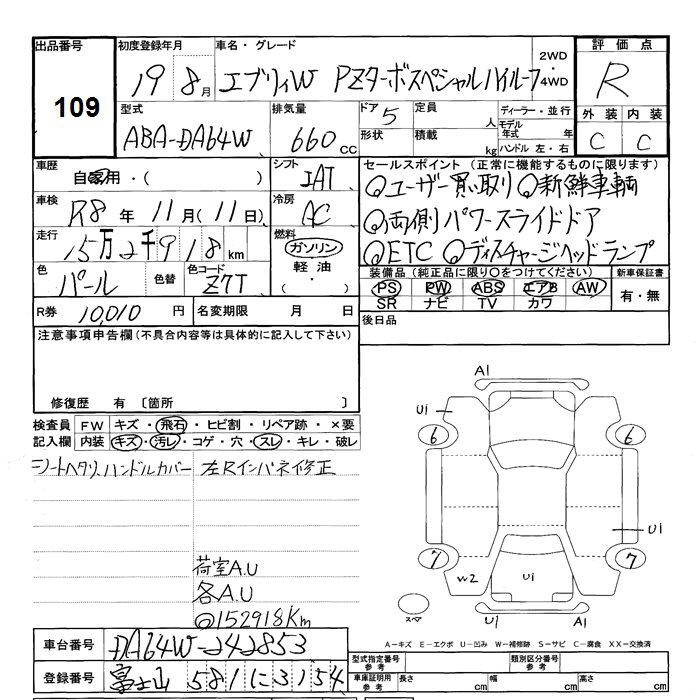 出品番号 初度登録年月 車名・グレード 2WD・4WD 評価点
109 19 8月 エブリィW PZターボスペシャルハイルーフ R
型式 排気量 ドア 5 定員 人 ディーラー・並行 外装 内装
ABA-DA64W 660cc 形状 積載 kg モデル年式 年 ハンドル 左・右 C C
車歴 自家用・( ) シフト IAT セールスポイント (正常に機能するものに限ります)
◎ユーザー買い取り ◎新鮮車輌
車検 R8年 11月(11日) 冷房 AC ◎両側パワースライドドア
走行 15万2千918km 燃料 ガソリン 軽油 ・( ) ◎ETC ◎ディスチャージヘッドランプ
色 パール 色替 色コード Z7T 装備品 (純正品に限り○をつけてください) 新車保証書
PS PW ABS エアB AW 有・無
SR ナビ TV カワ
R券 10,010円 名変期限 月 日 後日品
注意事項申告欄 (不具合内容等は具体的に記入して下さい)
修復歴 有 〔箇所 〕
検査員記入欄 FW キズ・飛石・ヒビ割・リペア跡・×要
内装 キズ・汚レ・コゲ・穴・スレ・キレ・破レ
シートヘタリ、ハンドルカバー 左Rインパネ修正
荷室A.U
各A.U
◎152918Km
A1
U1
6 6
U1
7 7
W2 U1
スペア U1 A1
A-キズ E-エクボ U-凹み W-補修跡 S-サビ C-腐食 XX-交換済
車台番号 DA64W-242853 型式指定番号 参考 類別区分番号 参考
登録番号 富士山 581 に 3154 車庫証明用 参考 長さ cm 幅 cm 高さ cm